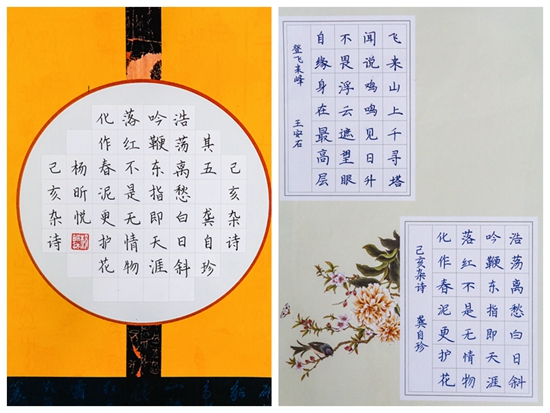 己亥杂诗
其五 龚自珍
浩荡离愁白日斜
吟鞭东指即天涯
落红不是无情物
化作春泥更护花
杨昕悦
己亥杂诗
飞来山上千寻塔
闻说鸣鸣见日升
不畏浮云遮望眼
自缘身在最高层
登飞来峰 王安石
浩荡离愁白日斜
吟鞭东指即天涯
落红不是无情物
化作春泥更护花
己亥杂诗 龚自珍